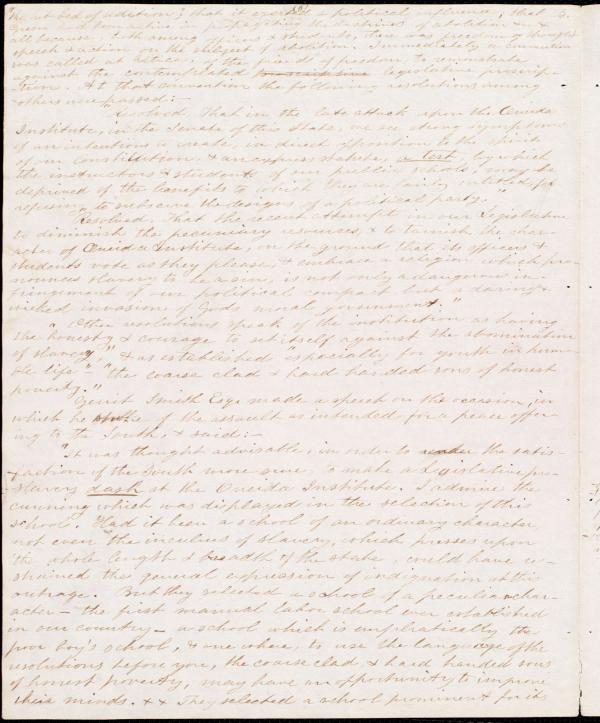 "the hot bed of sedition; that it exerted a political influence; that B.
Green had been active in propagating the doctrines of abolition &c. &c.
All because, both among officers & students, there was freedom of thought
speech & action on the subject of abolition. Immediately a convention
was called at Utica, of the friends of freedom, to remonstrate
against the contemplated legislative proscrip-
tion. At that convention the following resolutions among
others were passed:-
"Resolved, That in the late attack upon the Oneida
Institute, in the Senate of this State, we see strong symptoms
of an intention to create, in direct opposition to the spirit
of our Constitution, & an express statute, a test, by which
the instructors & students of our public schools, may be
deprived of the benefits to which they are fairly entitled, for
refusing to subserve the designs of a political party."
"Resolved, That the recent attempt in our Legislature
to diminish the pecuniary resources, & to tarnish the char-
acter of Oneida Institute, on the ground that its officers &
students vote as they please, & embrace a religion which pro-
nounces slavery to be a sin, is not only a dangerous in-
fringement of our political compact but a daring &
wicked invasion of God's moral government."
Other resolutions speak of the institution as having
"the honesty & courage to set itself against the abomination
of slavery," & as established especially for youth in hum-
ble life - "the coarse clad & hard handed sons of honest
poverty."
Gerrit Smith Esqr. made a speech on the occasion, in
which he of the assault as intended for a peace offer-
ing to the South, & said:-
"It was thought advisable, in order to the satis-
faction of the South more sure, to make a Legislative pro-
slavery dash at the Oneida Institute. I admire the
cunning which was displayed in the selection of this
school. Had it been a school of an ordinary character,
not even the incubus of slavery, which presses upon
the whole length & breadth of the state, could have re-
strained the general expression of indignation at this
outrage. But they selected a school of a peculiar char-
acter - the first manual labor school ever established
in our country - a school which is emphatically the
poor boy's school, & one where, to use the language of the
resolutions before you, the coarse clad & hard handed sons
of honest poverty, may have an opportunity to improve
their minds. & & They selected a school prominent for its